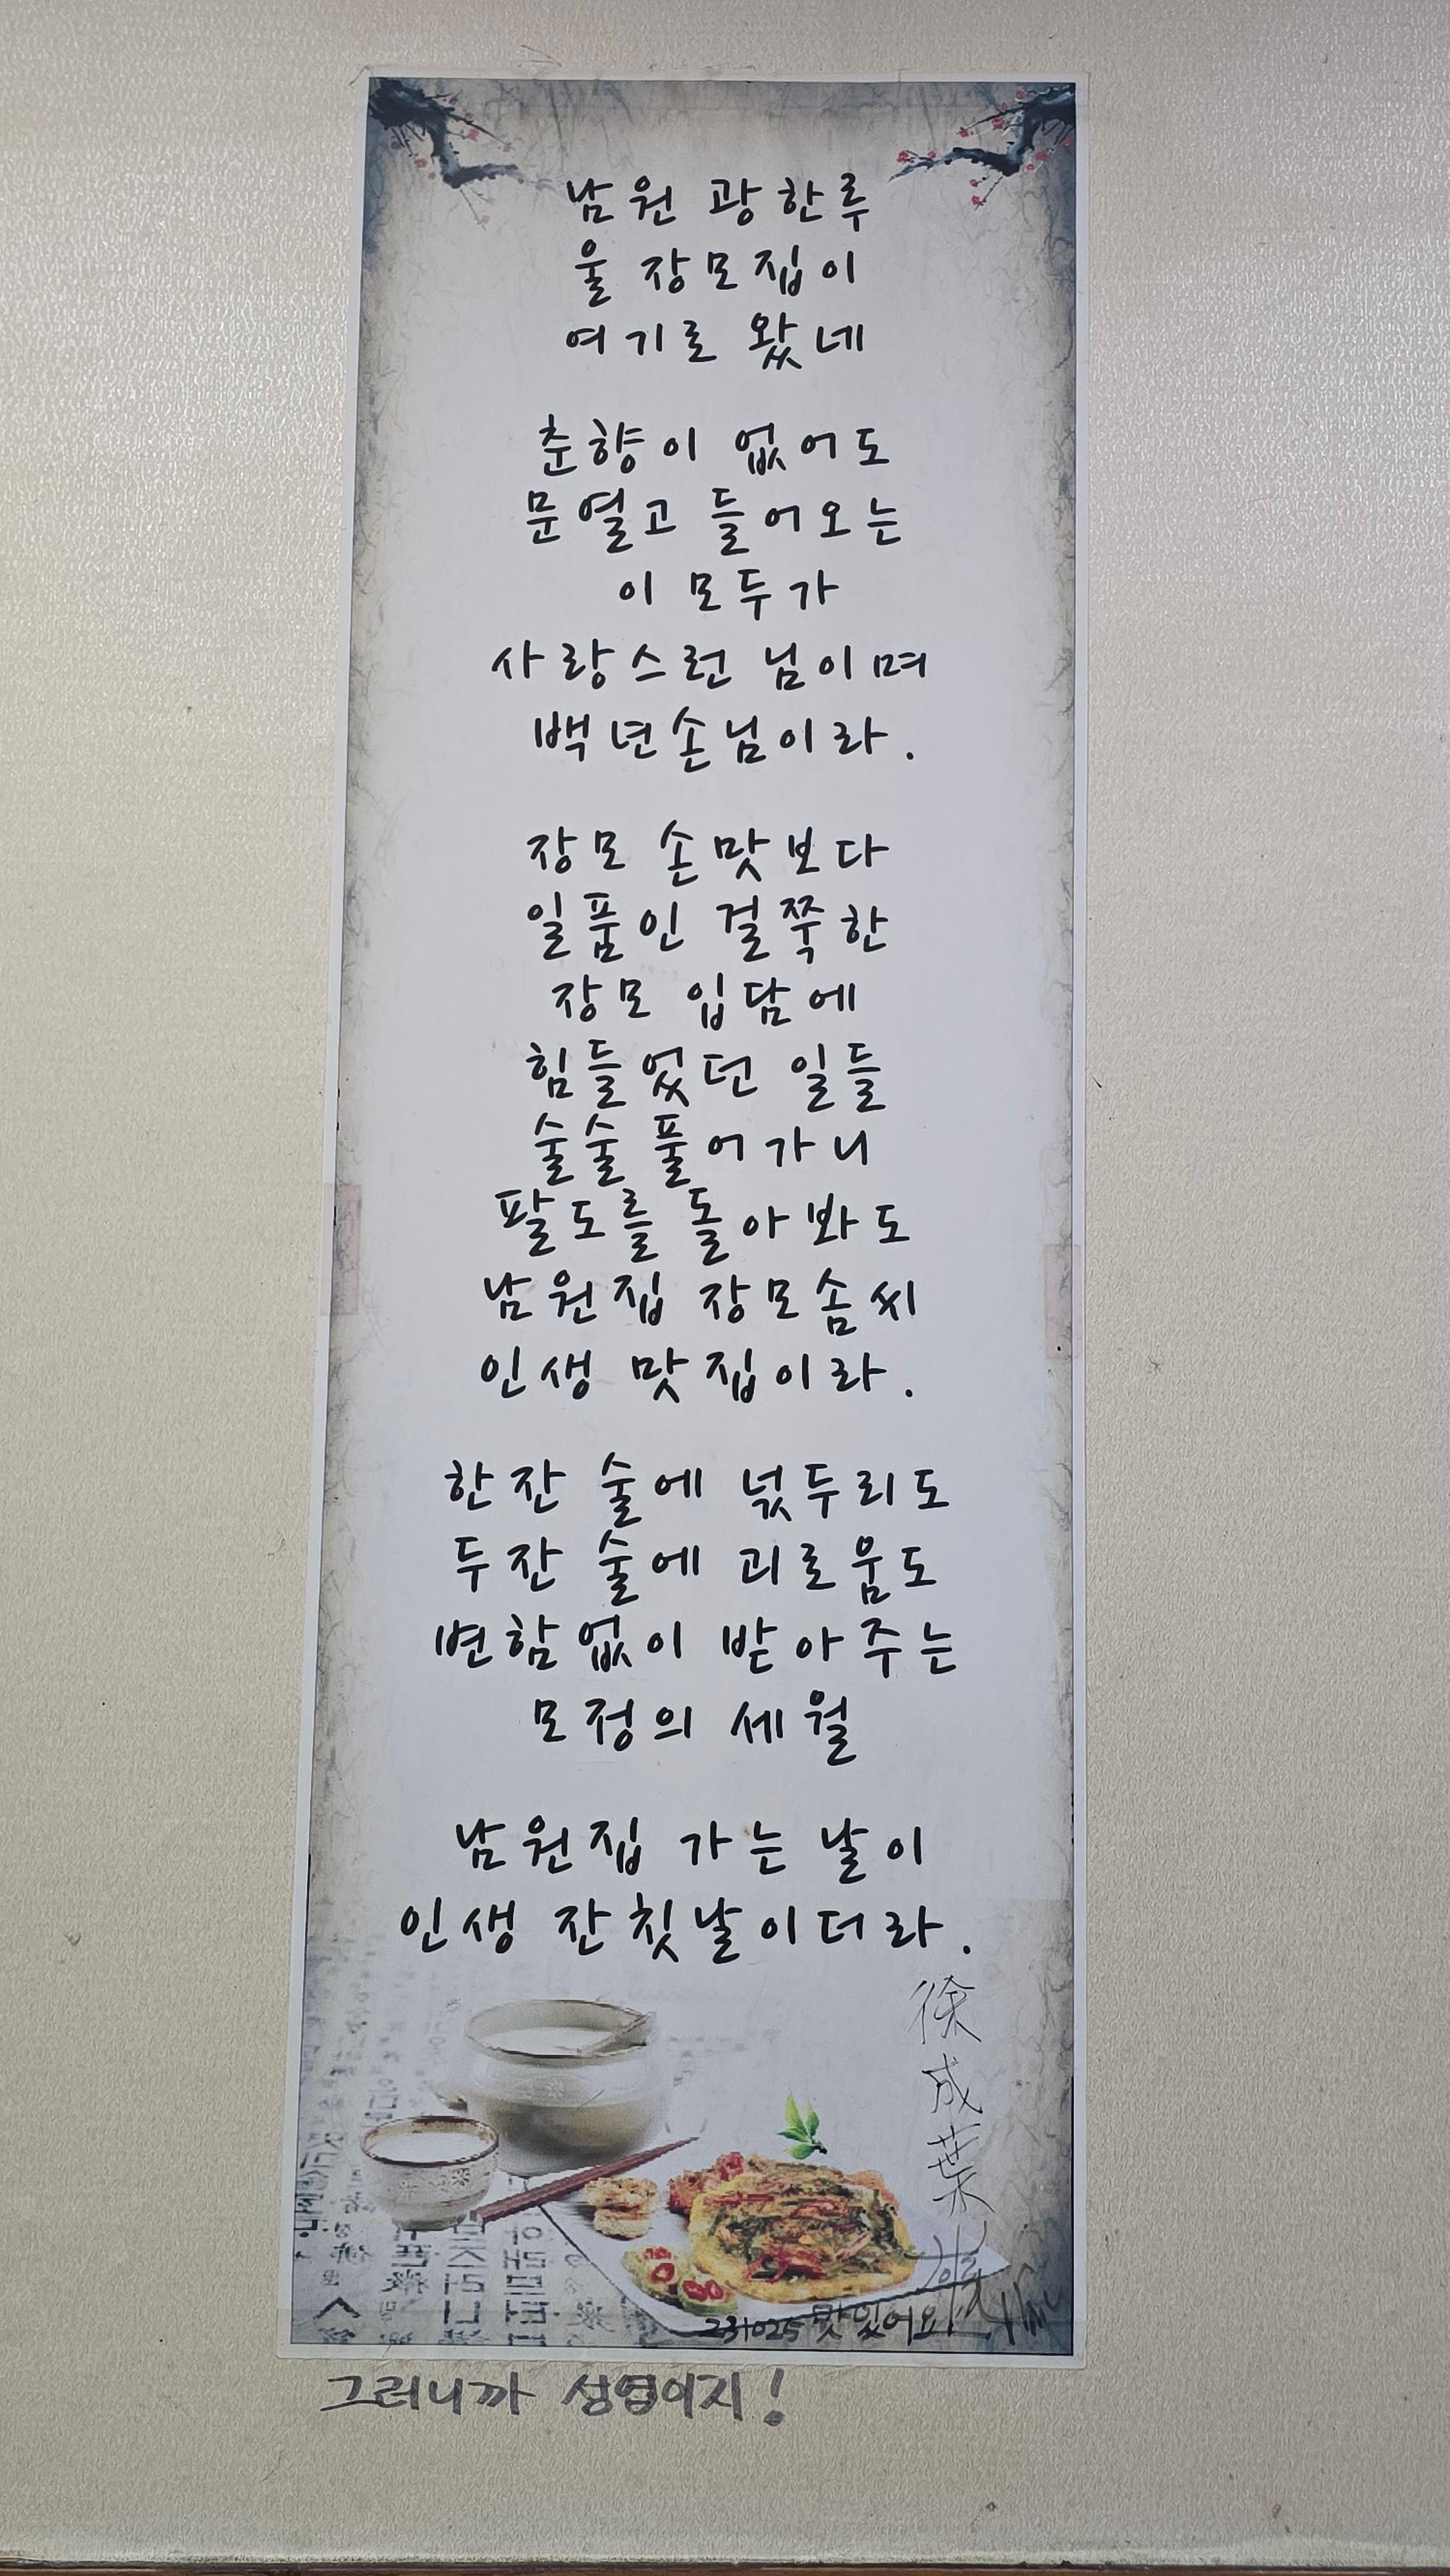 남원 광한루
울 장모집이
여기로 왔네
춘향이 없어도
문열고 들어오는
이 모두가
사랑스런 님이며
백년손님이라.
장모 손맛보다
일품인 걸쭉한
장모 입담에
힘들었던 일들
술술 풀어가니
팔도를 돌아봐도
남원집 장모솜씨
인생 맛집이라.
한잔 술에 넋두리도
두잔 술에 괴로움도
변함없이 받아주는
모정의 세월
남원집 가는 날이
인생 잔칫날이더라.
徐成葉
231025 맛있어요
그러니까 성엽이지!